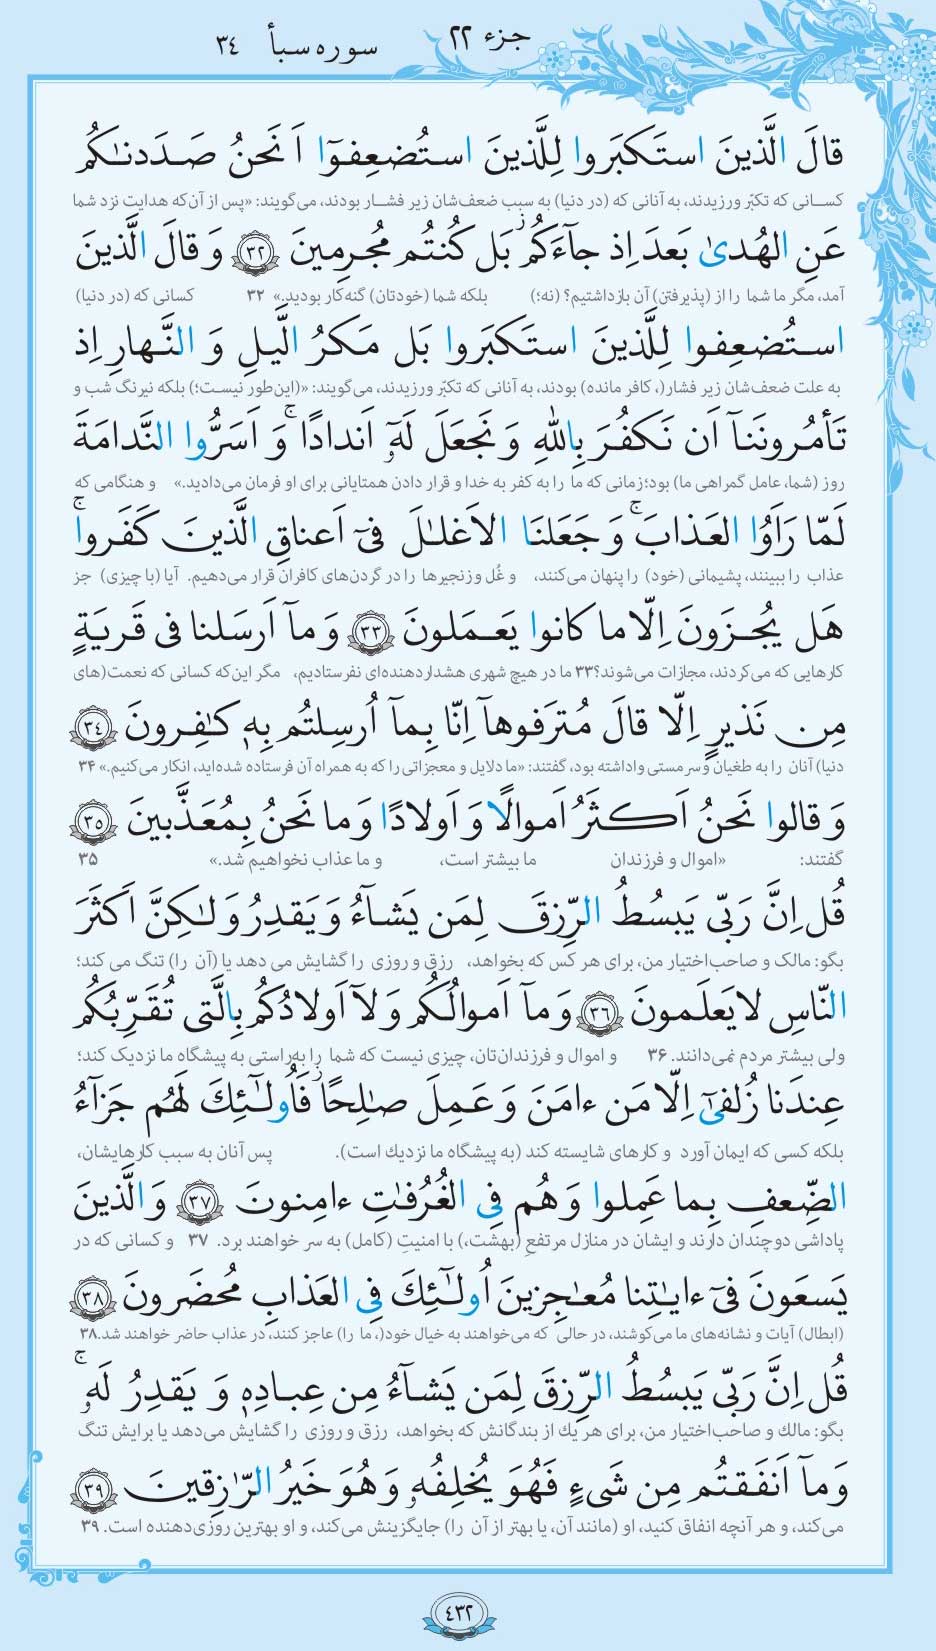 جزء ۲۲ سوره سبأ ٣٤
قالَ الَّذينَ استَكبَروا لِلَّذينَ استُضعِفوٓا اَنَحنُ صَدَدنـٰكُم
کسانی که تکبّر ورزیدند، به آنانی که (در دنیا) به سبب ضعف‌شان زیر فشار بودند، می‌گویند: «پس از آن‌که هدایت نزد شما
عَنِ الهُدىٰ بَعدَ اِذ جآءَكُم ۖ بَل كُنتُم مُجرِمينَ ٣٢ وَ قالَ الَّذينَ
آمد، مگر ما شما را از (پذیرفتن) آن بازداشتیم؟ (نه؛) بلکه شما (خودتان) گنه‌کار بودید.» ۳۲ کسانی که (در دنیا)
استُضعِفوا لِلَّذينَ استَكبَروا بَل مَكرُ الَّيلِ وَ النَّهارِ اِذ
به علت ضعف‌شان زیر فشار(، کافر مانده) بودند، به آنانی که تکبّر ورزیدند، می‌گویند: «(این‌طور نیست؛) بلکه نیرنگ شب و
تَأمُرونَنآ اَن نَكفُرَ بِاللهِ وَ نَجعَلَ لَهٓ اَندادًا ۚ وَ اَسَرُّوا النَّدامَةَ
روز (شما، عامل گمراهی ما) بود؛ زمانی که ما را به کفر به خدا و قرار دادن همتایانی برای او فرمان می‌دادید.» و هنگامی که
لَمّا رَاَوُا العَذابَ ۚ وَ جَعَلنَا الاَغلـٰلَ فىٓ اَعناقِ الَّذينَ كَفَروا ۚ
عذاب را ببینند، پشیمانی (خود) را پنهان می‌کنند، و غُل و زنجیرها را در گردن‌های کافران قرار می‌دهیم. آیا (با چیزی) جز
هَل يُجزَونَ اِلّا ما كانوا يَعمَلونَ ٣٣ وَ مآ اَرسَلنا فى قَريَةٍ
کارهایی که می‌کردند، مجازات می‌شوند؟ ۳۳ ما در هیچ شهری هشداردهنده‌ای نفرستادیم، مگر این‌که کسانی که نعمت(های
مِن نَذيرٍ اِلّا قالَ مُترَفوهآ اِنّا بِمآ اُرسِلتُم بِهٖ كـٰفِرونَ ٣٤
دنیا) آنان را به طغیان و سرمستی واداشته بود، گفتند: «ما دلایل و معجزاتی را که به همراه آن فرستاده شده‌اید، انکار می‌کنیم.» ۳۴
وَ قالوا نَحنُ اَكثَرُ اَموالًا وَ اَولادًا وَ ما نَحنُ بِمُعَذَّبينَ ٣٥
گفتند: «اموال و فرزندان ما بیشتر است، و ما عذاب نخواهیم شد.» ۳۵
قُل اِنَّ رَبّى يَبسُطُ الرِّزقَ لِمَن يَشآءُ وَ يَقدِرُ وَ لـٰكِنَّ اَكثَرَ
بگو: مالک و صاحب‌اختیار من، برای هر کس که بخواهد، رزق و روزی را گشایش می دهد یا (آن را) تنگ می کند؛
النّاسِ لا يَعلَمونَ ٣٦ وَ مآ اَموالُكُم وَ لآ اَولادُكُم بِالَّتى تُقَرِّبُكُم
ولی بیشتر مردم نمی‌دانند. ۳۶ و اموال و فرزندان‌تان، چیزی نیست که شما را به‌راستی به پیشگاه ما نزدیک کند؛
عِندَنا زُلفىٰٓ اِلّا مَن ءامَنَ وَ عَمِلَ صـٰلِحًا ۖ فَاُولـٰٓئِكَ لَهُم جَزآءُ
بلکه کسی که ایمان آورد و کارهای شایسته کند (به پیشگاه ما نزدیك است). پس آنان به سبب کارهایشان،
الضِّعفِ بِما عَمِلوا وَ هُم فِى الغُرُفـٰتِ ءامِنونَ ٣٧ وَ الَّذينَ
پاداشی دوچندان دارند و ایشان در منازل مرتفعِ (بهشت،) با امنیتِ (کامل) به سر خواهند برد. ۳۷ و کسانی که در
يَسعَونَ فىٓ ءايـٰتِنا مُعـٰجِزينَ اُولـٰٓئِكَ فِى العَذابِ مُحضَرونَ ٣٨
(ابطال) آیات و نشانه‌های ما می‌کوشند، در حالی که می‌خواهند به خیال خود(، ما را) عاجز کنند، در عذاب حاضر خواهند شد. ۳۸
قُل اِنَّ رَبّى يَبسُطُ الرِّزقَ لِمَن يَشآءُ مِن عِبادِهٖ وَ يَقدِرُ لَهٗ ۚ
بگو: مالك و صاحب‌اختیار من، برای هر یك از بندگانش که بخواهد، رزق و روزی را گشایش می‌دهد یا برایش تنگ
وَ مآ اَنفَقتُم مِن شَىءٍ فَهُوَ يُخلِفُهٗ وَ هُوَ خَيرُ الرّٰزِقينَ ٣٩
می‌کند، و هر آنچه انفاق کنید، او (مانند آن، یا بهتر از آن را) جایگزینش می‌کند، و او بهترین روزی‌دهنده است. ۳۹
٤٣٢